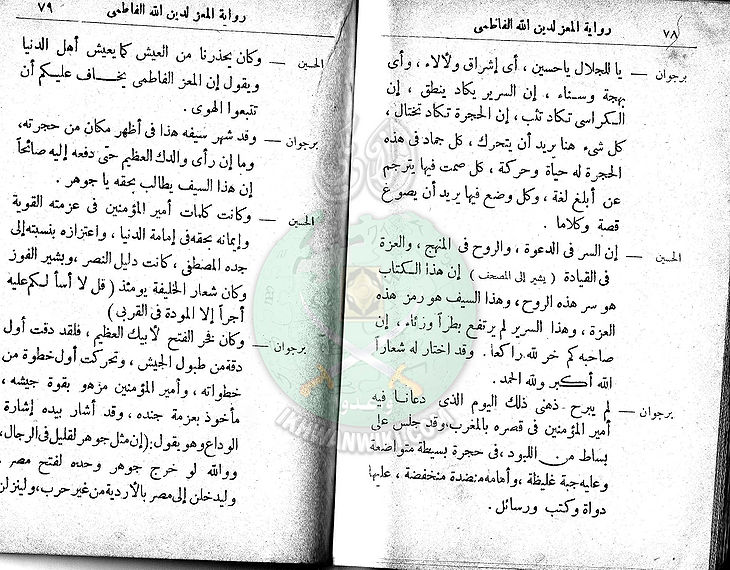 ٧٨
رواية المعز لدين الله الفاطمى
برجوان — يا للجلال ياحسين ، أى إشراق ولألاء ، وأى
بهجة وسناء ، إن السرير يكاد ينطق ، إن
الكراسى تكاد تثب ، إن الحجرة تكاد تختال ،
كل شىء هنا يريد أن يتحرك ، كل جماد فى هذه
الحجرة له حياة وحركة ، كل صمت فيها يترجم
عن أبلغ لغة ، وكل وضع فيها يريد أن يصوغ
قصة وكلاما .
الحسين — إن السر فى الدعوة ، والروح فى المنهج ، والعزة
فى القيادة ( يشير إلى المصحف ) إن هذا الكتاب
هو سر هذه الروح ، وهذا السيف هو رمز هذه
العزة ، وهذا السرير لم يرتفع بطراً ورئاء ، إن
صاحبه كم خر لله راكعاً . وقد اختار له شعاراً
الله أكبر ولله الحمد .
برجوان — لم يبرح ذهنى ذلك اليوم الذى دعانا فيه
أمير المؤمنين فى قصره بالمغرب ، وقد جلس على
بساط من اللبود ، فى حجرة بسيطة متواضعة
وعليه جبة غليظة ، وأمامه منضدة منخفضة ، عليها
دواة وكتب ورسائل .
رواية المعز لدين الله الفاطمى
٧٩
الحسين — وكان يحذرنا من العيش كما يعيش أهل الدنيا
ويقول إن المعز الفاطمى يخاف عليكم أن
تتبعوا الهوى .
برجوان — وقد شهر سيفه هذا فى أظهر مكان من حجرته ،
وما إن رأى والدك العظيم حتى دفعه إليه صائحاً
إن هذا السيف يطالب بحقه يا جوهر .
الحسين — وكانت كلمات أمير المؤمنين فى عزمته القوية
وإيمانه بحقه فى إمامة الدنيا ، واعتزازه بنسبته إلى
جده المصطفى ، كانت دليل النصر ، وبشير الفوز
وكان شعار الخليفة يومئذ ( قل لا أسألكم عليه
أجراً إلا المودة فى القربى )
برجوان — وكان فخر الفتح لأبيك العظيم ، فلقد دقت أول
دقة من طبول الجيش ، وتحركت أول خطوة من
خطواته ، وأمير المؤمنين مزهو بقوة جيشه ،
مأخوذ بعزمة جنده ، وقد أشار بيده إشارة
الوداع وهو يقول : ( إن مثل جوهر لقليل فى الرجال ،
ووالله لو خرج جوهر وحده لفتح مصر
وليدخلن إلى مصر بالأردية من غير حرب ، ولينزلن
IKHWANWIKI.COM